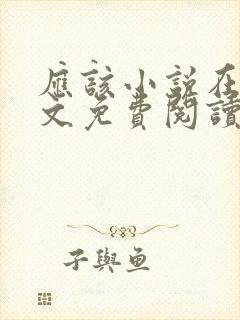 應該小說在
文免費閱讀
子與魚